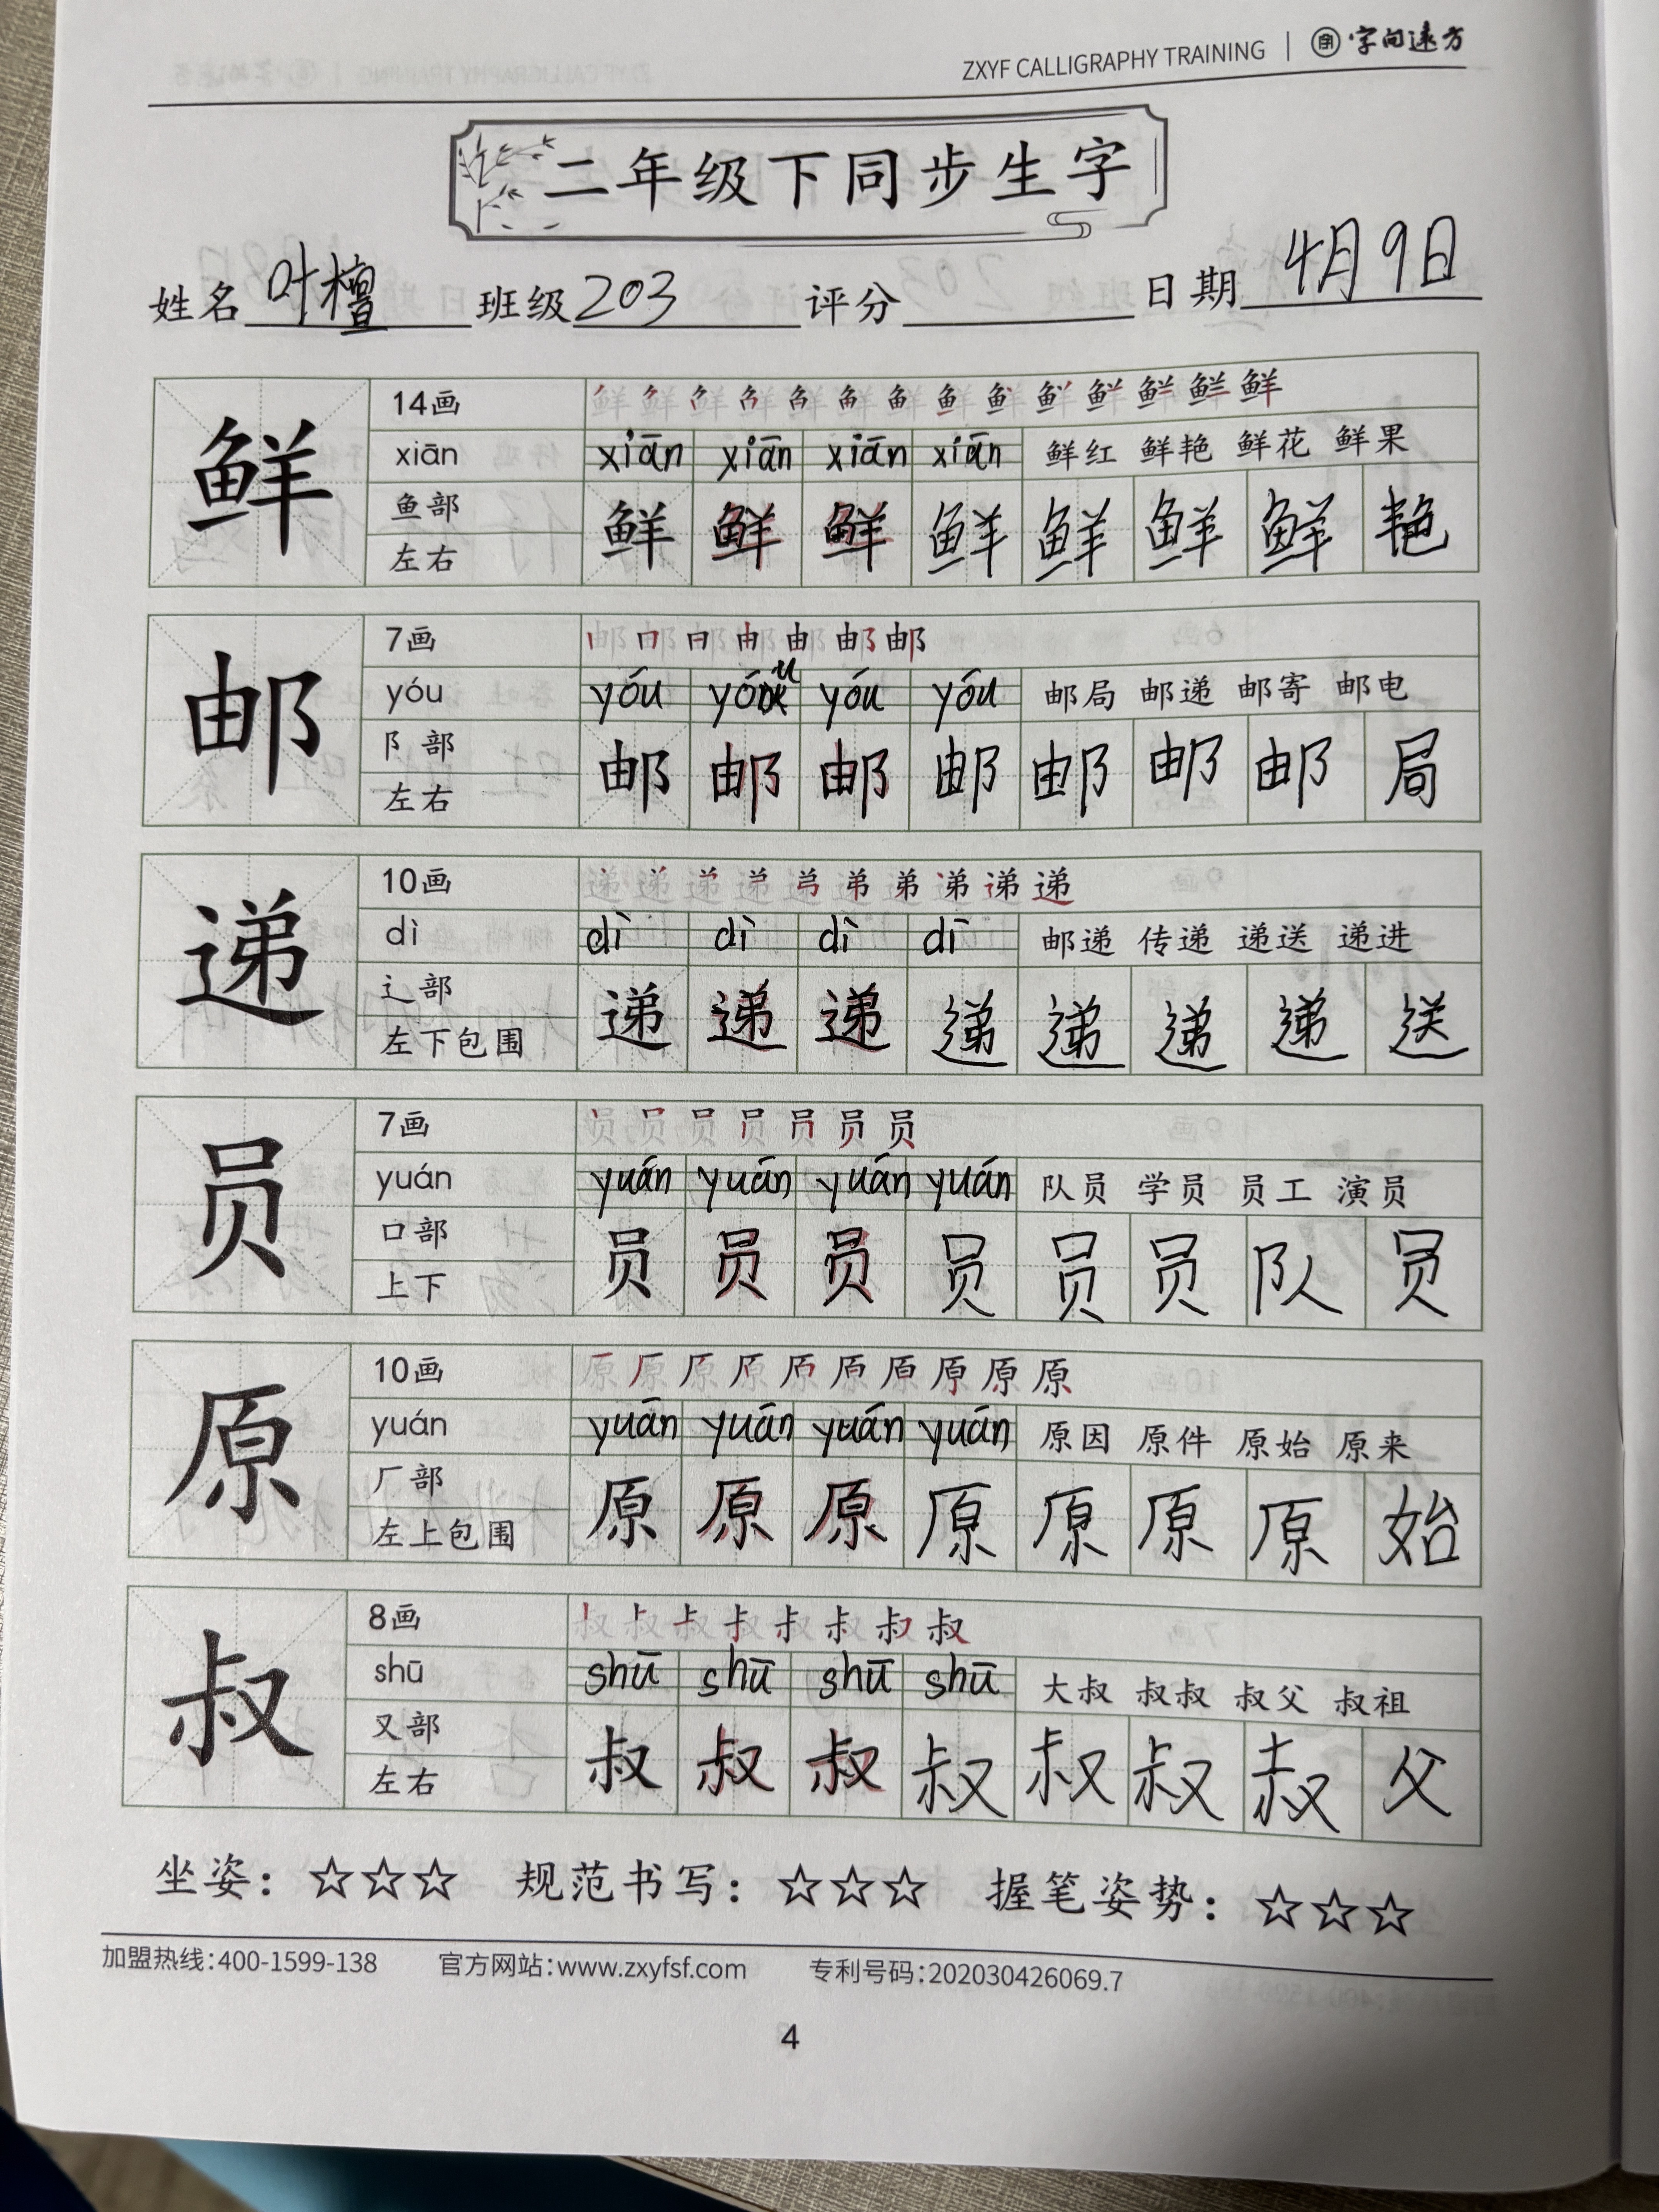 ZXYF CALLIGRAPHY TRAINING | 字向远方
二年级下同步生字
姓名 叶檀 班级 203 评分 日期 4月9日
鲜
14画 鲜 鲜 鲜 鲜 鲜 鲜 鲜 鲜 鲜 鲜 鲜 鲜 鲜 鲜
xiān xiān xiān xiān xiān 鲜红 鲜艳 鲜花 鲜果
鱼部
左右
鲜 鲜 鲜 鲜 鲜 鲜 鲜 艳
邮
7画 邮 邮 邮 邮 邮 邮 邮
yóu yóu yóu yóu yóu 邮局 邮递 邮寄 邮电
阝部
左右
邮 邮 邮 邮 邮 邮 邮 局
递
10画 递 递 递 递 递 递 递 递 递 递
dì dì dì dì dì 邮递 传递 递送 递进
辶部
左下包围
递 递 递 递 递 递 递 送
员
7画 员 员 员 员 员 员 员
yuán yuán yuán yuán yuán 队员 学员 员工 演员
口部
上下
员 员 员 员 员 员 队 员
原
10画 原 原 原 原 原 原 原 原 原 原
yuán yuán yuán yuán yuán 原因 原件 原始 原来
厂部
左上包围
原 原 原 原 原 原 原 始
叔
8画 叔 叔 叔 叔 叔 叔 叔 叔
shū shū shū shū shū 大叔 叔叔 叔父 叔祖
又部
左右
叔 叔 叔 叔 叔 叔 叔 父
坐姿：☆☆☆ 规范书写：☆☆☆ 握笔姿势：☆☆☆
加盟热线：400-1599-138 官方网站：www.zxyfsf.com 专利号码：202030426069.7
4